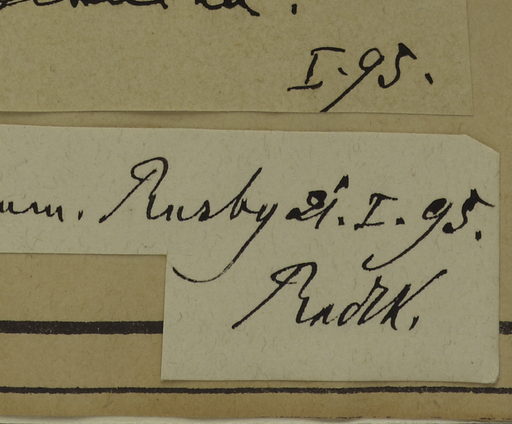 I. 95.
Rusby 21. I. 95.
Radlk.